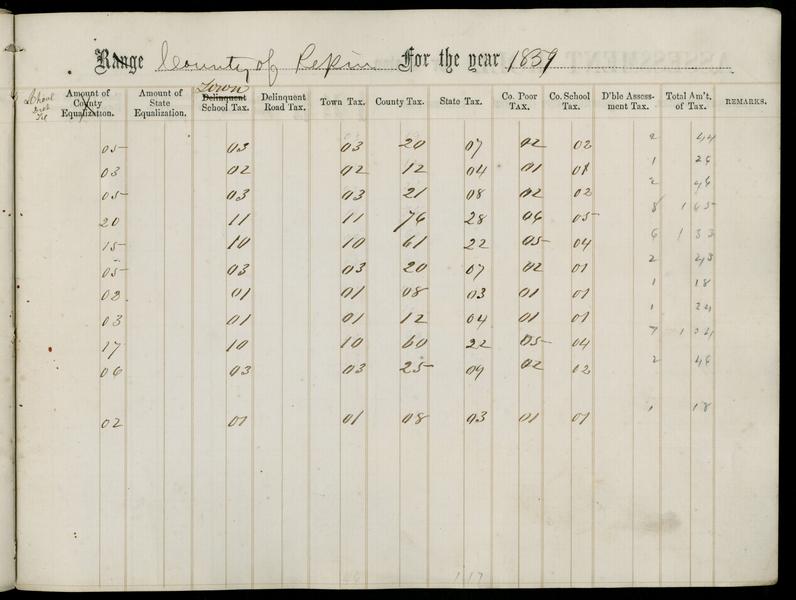 Range County of Pepin For the year 1839
School Dist Tax Amount of County Equalization. Amount of State Equalization. Town Delinquent School Tax. Delinquent Road Tax. Town Tax. County Tax. State Tax. Co. Poor TAX. Co. School Tax. D'ble Assess-ment Tax. Total Am't. of Tax. REMARKS.
05 03 03 20 07 02 02 2 44
03 02 02 12 04 01 01 1 26
05 03 03 21 08 02 02 2 46
20 11 11 76 28 06 05 8 1 65
15 10 10 61 22 05 04 6 1 33
05 03 03 20 07 02 01 2 43
02 01 01 08 03 01 01 1 18
03 01 01 12 04 01 01 1 24
17 10 10 60 22 05 04 7 1 34
06 03 03 25 09 02 02 2 46
02 01 01 08 03 01 01 1 18